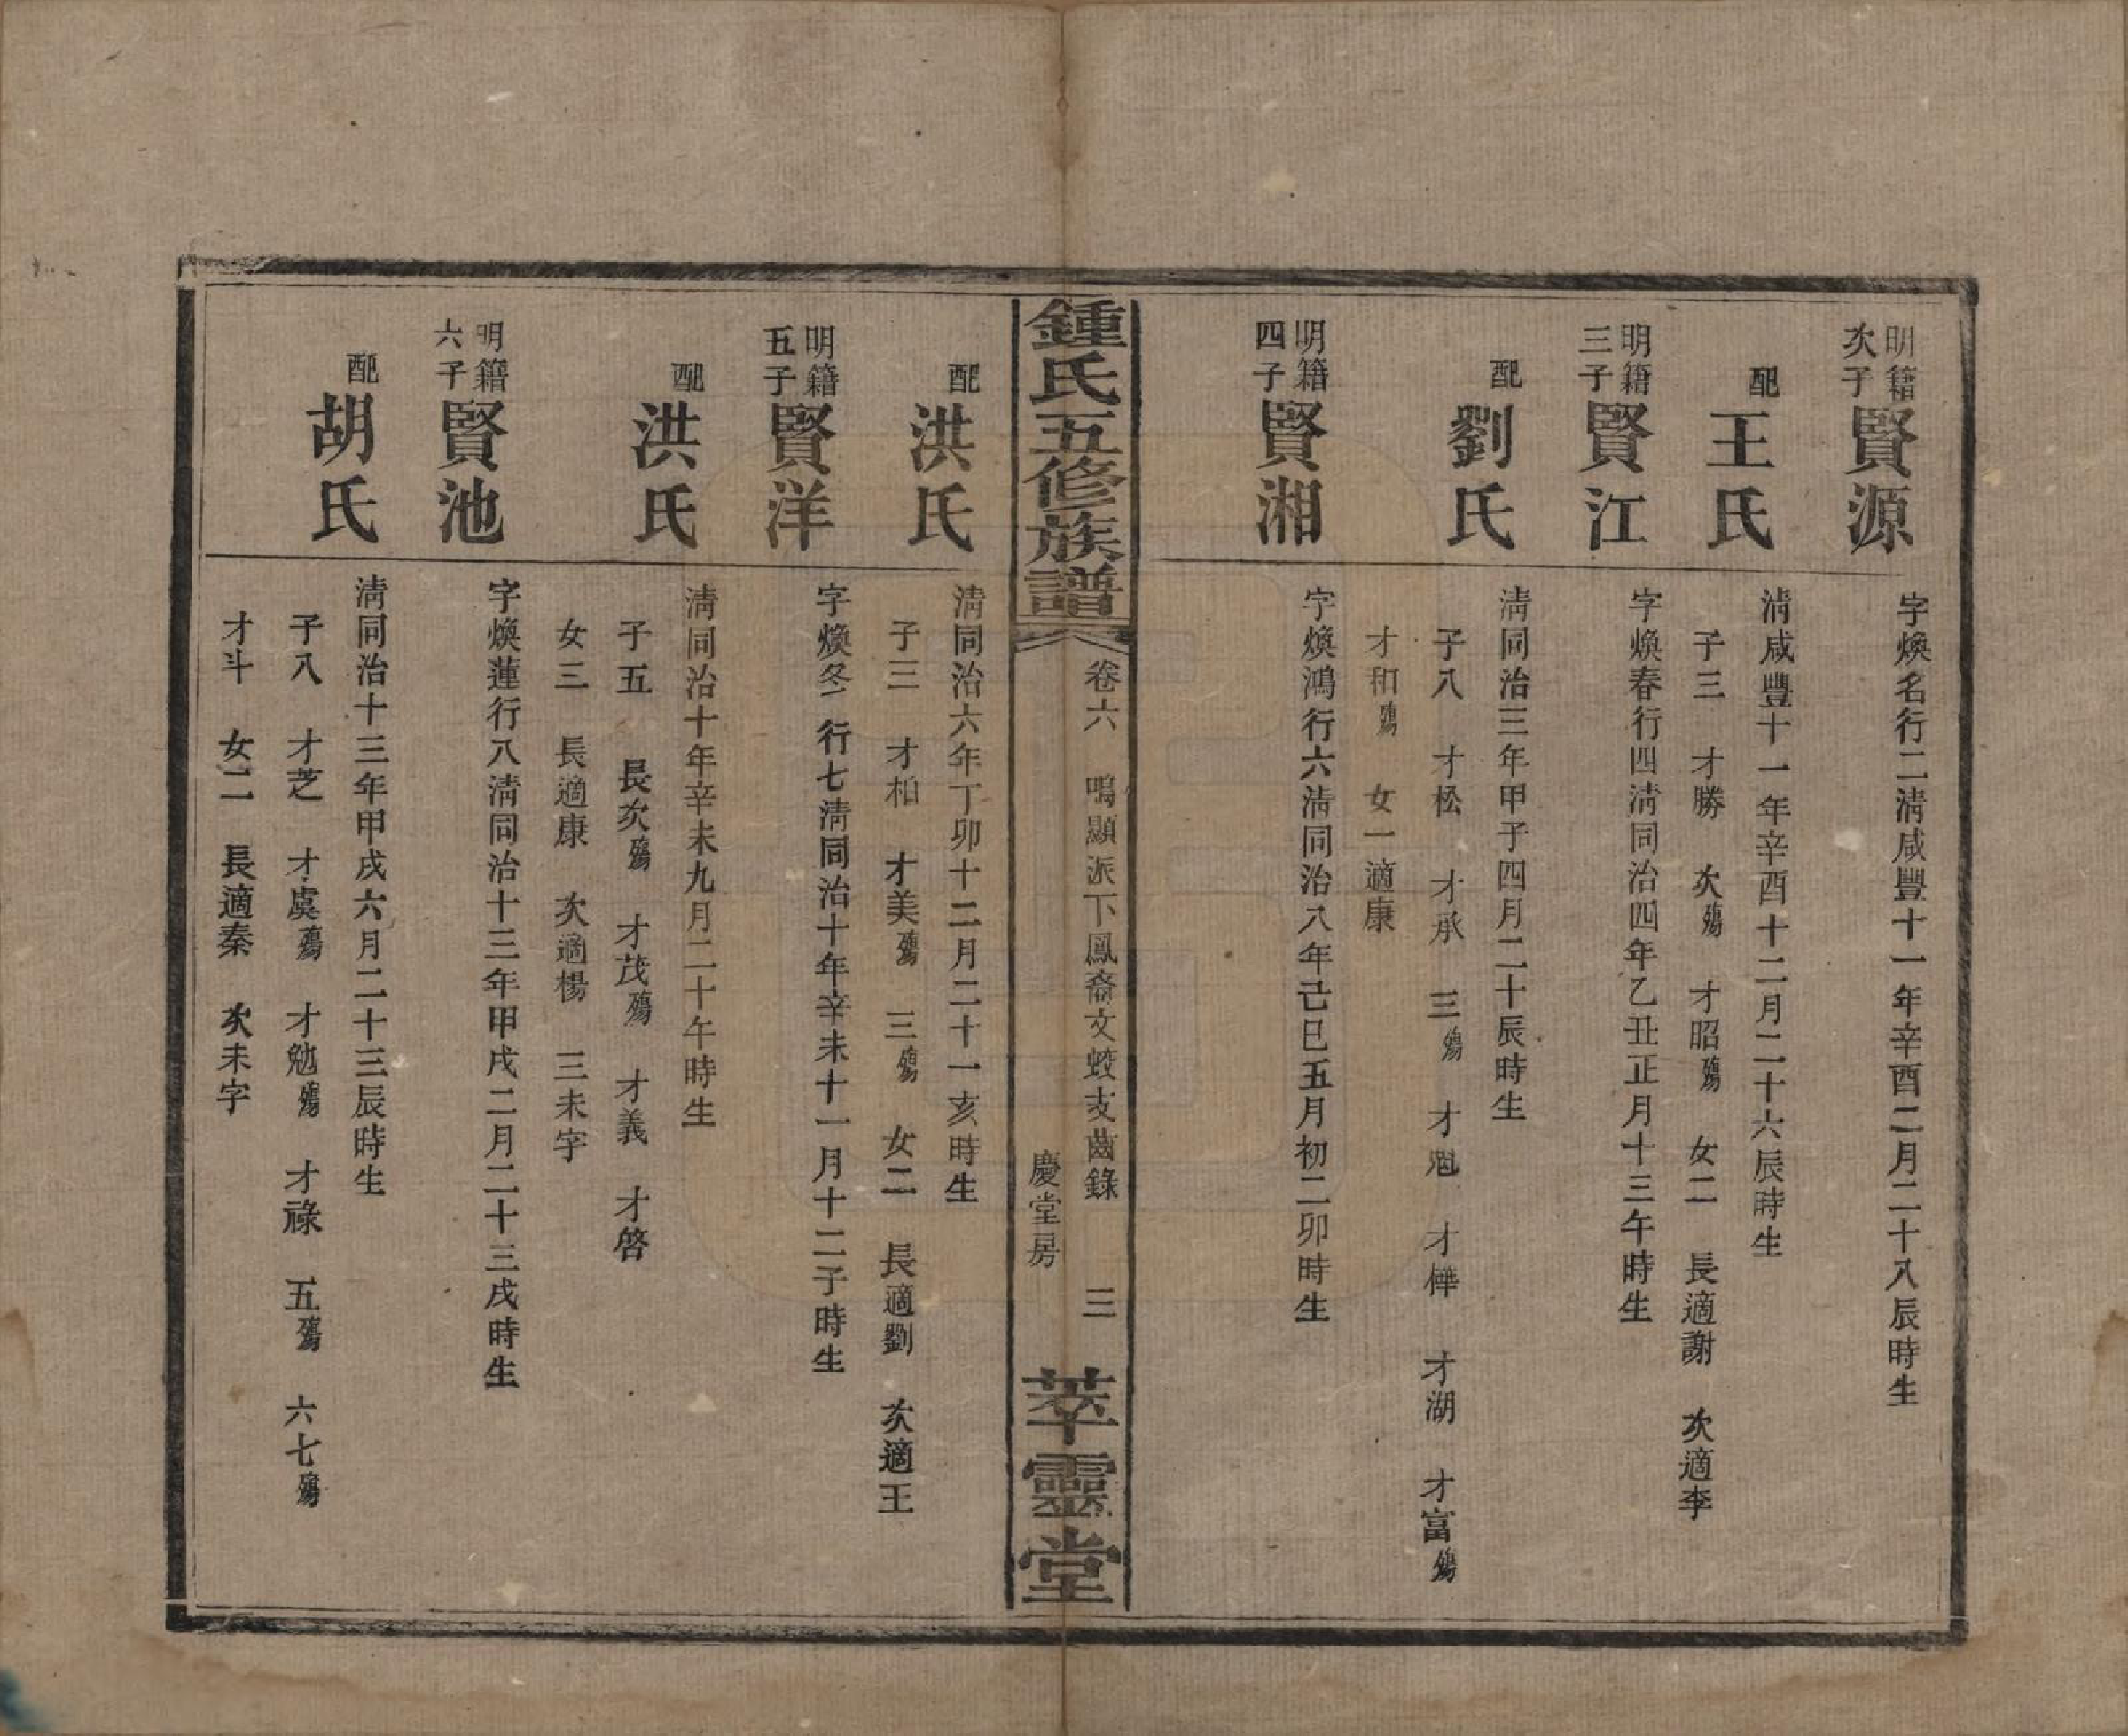 明籍次子賢源
字煥名行二清咸豐十一年辛酉二月二十八辰時生
配王氏
清咸豐十一年辛酉十二月二十六辰時生
子三 才勝 次殤 才昭殤 女二 長適謝 次適李
明籍三子賢江
字煥春行四清同治四年乙丑正月十三午時生
配劉氏
清同治三年甲子四月二十辰時生
子八 才松 才承 三殤 才魁 才樺 才湖 才富殤
才和殤 女一適康
明籍四子賢湘
字煥鴻行六清同治八年己巳五月初二卯時生
鍾氏五修族譜
卷六 鳴顯派下鳳裔文蛟支齒錄 三
慶堂房
萃靈堂
配洪氏
清同治六年丁卯十二月二十一亥時生
子三 才柏 才美殤 三殤 女二 長適劉 次適王
明籍五子賢洋
字煥冬行七清同治十年辛未十一月十二子時生
配洪氏
清同治十年辛未九月二十午時生
子五 長次殤 才茂殤 才義 才啓
女三 長適康 次適楊 三未字
明籍六子賢池
字煥蓮行八清同治十三年甲戌二月二十三戌時生
配胡氏
清同治十三年甲戌六月二十三辰時生
子八 才芝 才虞殤 才勉殤 才祿 五殤 六七殤
才斗 女二 長適秦 次未字